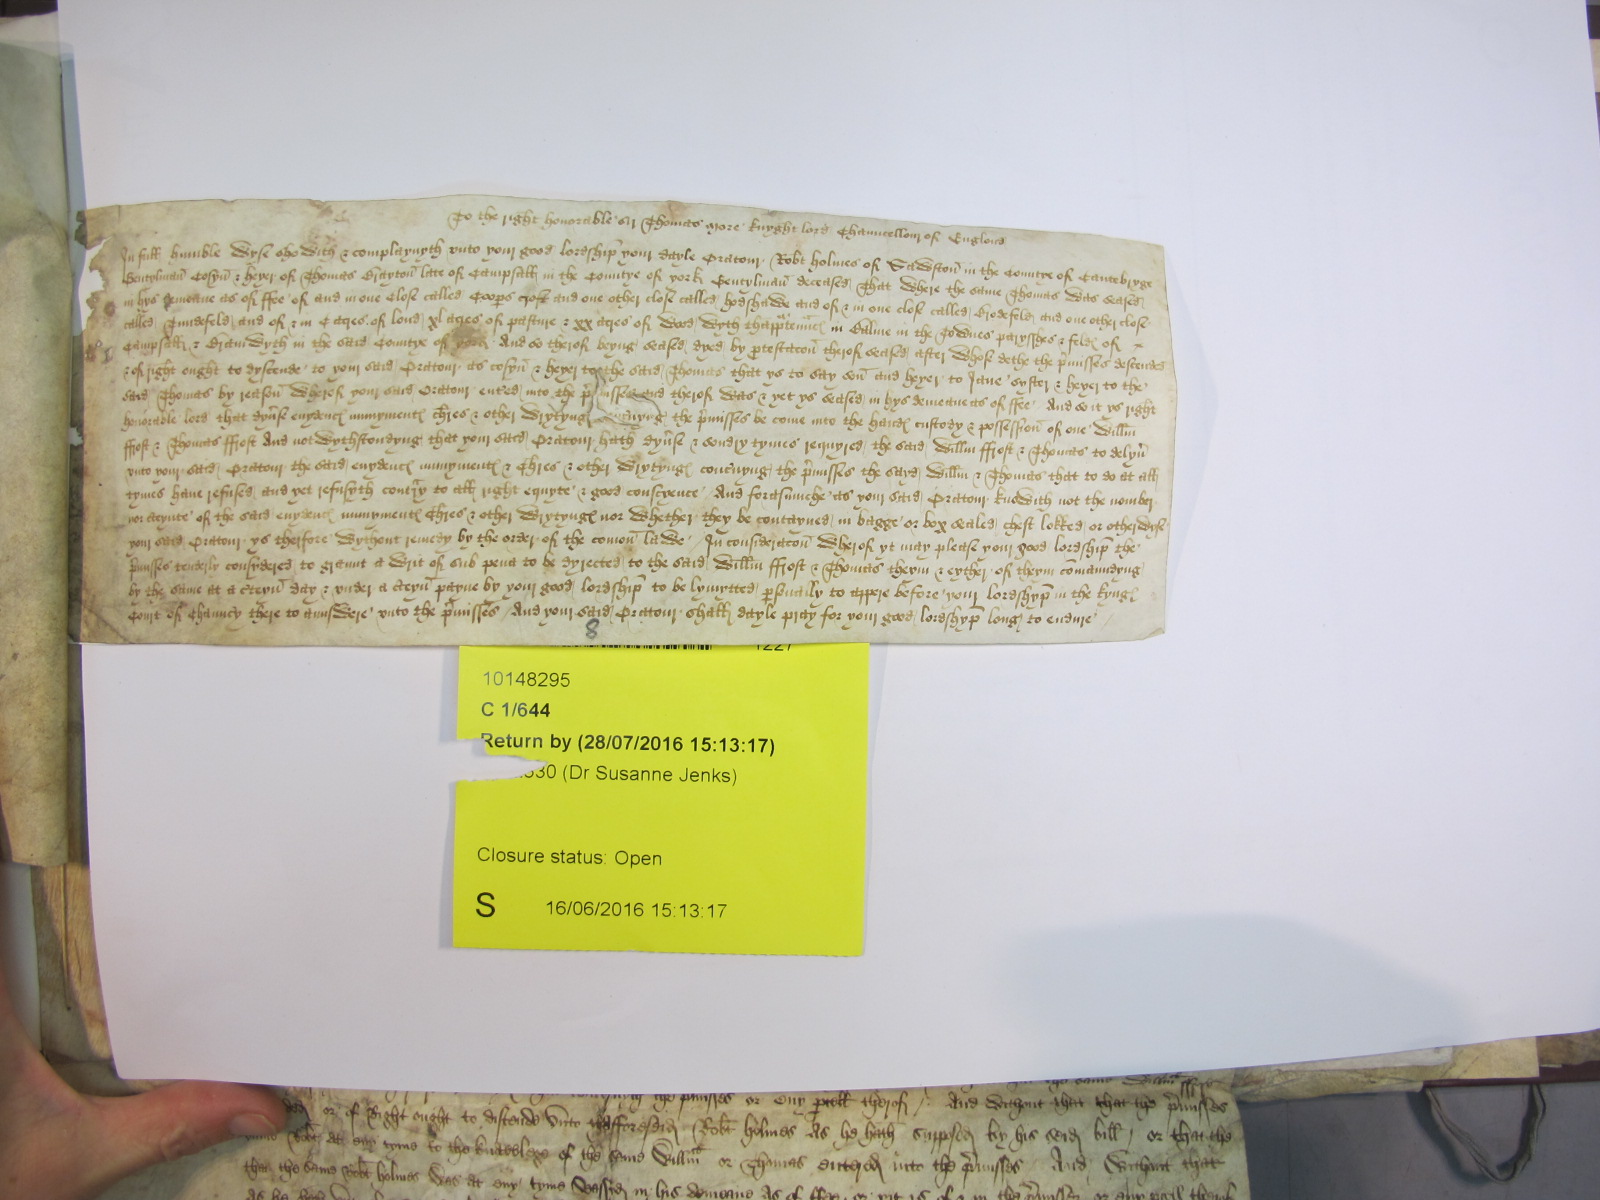 To the right honorable sir Thomas More knyght lord Chauncellour of Englond
In full humble wyse shewith & complaynyth unto your good lordship your dayle Oratour Robt Holmes of Sawston in the Countye of Cantebryge
Gentylman Cosyn & heyer of Thomas late of Campsall in the Countye of york Gentylman deceased That where the same Thomas was seased
in hys demeane as of ffee of and in one close called Coops croft and one other close called hodshawe and of & in one close called and one other close
called and of & in C acres of lond xl acres of pasture & xx acres of wood wyth thapptennce in Balme in the Townes parysshes & feldes of
Campsall & in the said Countye of york And so therof beyng seased dyed by protestacon therof seased after whose dethe the pmisses descended
& of right ought to dyscende to your said Oratour as cosyn & heyer to the said Thomas that ys to say son and heyer to Jane syster & heyer to the
said Thomas by reason wherof your said Oratour entred into the pmisses and therof was & yet ys seased in hys demeane as of ffee And so it ys right
honorable lord that dyvse evydence mynymentes chres & other wrytynges concnyng the pmisses be come into the handes custody & possession of one Willm
ffrost & Thomas ffrost And notwythstondyng that your said Oratour hath dyvse & sondry tymes requyred the said Willm ffrost & Thomas to delyv
unto your said Oratour the said evydences mynymentes & chres & other wrytynges concnyng the pmisses the sayd Willm & Thomas that to do at all
tymes have refused and yet refusyth contry to all right equyte & good conscyence And forasmuche as your said Oratour knowith not the nomber
nor cteynte of the said evydences mynymentes chres & other wrytynges nor whether they be contayned in bagge or box sealed chest lokked or otherwyse
your said Oratour ys therfore wythout remedy by the order of the comon lawe In consideracon wherof yt may please your good lordship the
pmisses tenderly consydered to graunt a writ of sub pena to be dyrected to the said Willm ffrost & Thomas theym & eyther of theym comaundyng
by the same at a cteyn day & under a cteyn payne by your good lordship to be lymytted psonally to appere before your lordshyp in the kynges
Court of Chauncy there to aunswere unto the pmisses And your said Oratour shall dayle pray for your good lordshyp long to endure
8
1227
10148295
C 1/644
Return by (28/07/2016 15:13:17)
530 (Dr Susanne Jenks)
Closure status: Open
S 16/06/2016 15:13:17
the pmisses or any pcell therof And without that that the pmisses
or of Right ought to discende unto thafforesaid Robt holmes As he hath supposed by his seid bill or that the
same Robt at any tyme to the knowlege of the same Willm or Thomas entered into the pmisses And without that
that the same Robt holmes was at any tyme seassed in his demeane As of ffee